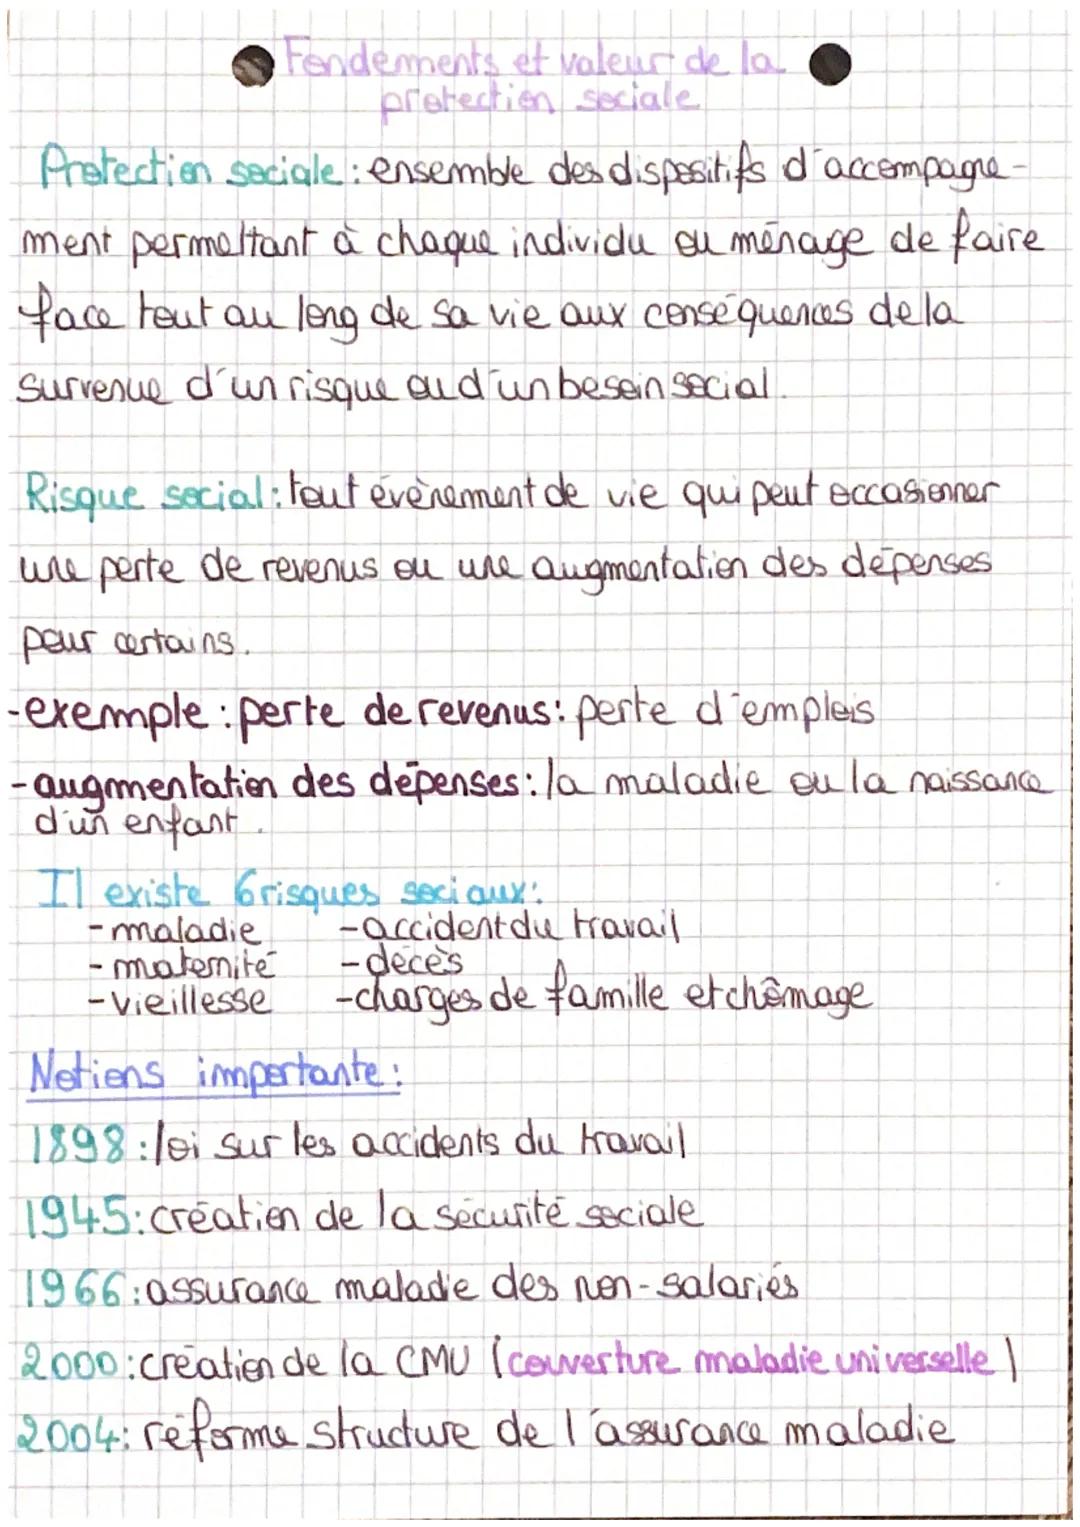 Fondements et valeur de la
protection sociale
Protection sociale : ensemble des dispositifs d'accompagne-
ment permettant à chaque individu ou ménage de faire
face tout au long de sa vie aux conséquences de la
survenue d'un risque ou d'un besoin social.
Risque social : tout évènement de vie qui peut occasionner
une perte de revenus ou une augmentation des dépenses
pour certains.
-exemple : perte de revenus : perte d'emplois
-augmentation des dépenses : la maladie ou la naissance
d'un enfant.
Il existe 6 risques sociaux :
-maladie -accident du travail
-maternité -décès
-vieillesse -charges de famille et chômage
Notions importante :
1898 : loi sur les accidents du travail
1945 : création de la sécurité sociale
1966 : assurance maladie des non-salariés
2000 : création de la CMU (couverture maladie universelle)
2004 : réforme structure de l'assurance maladie